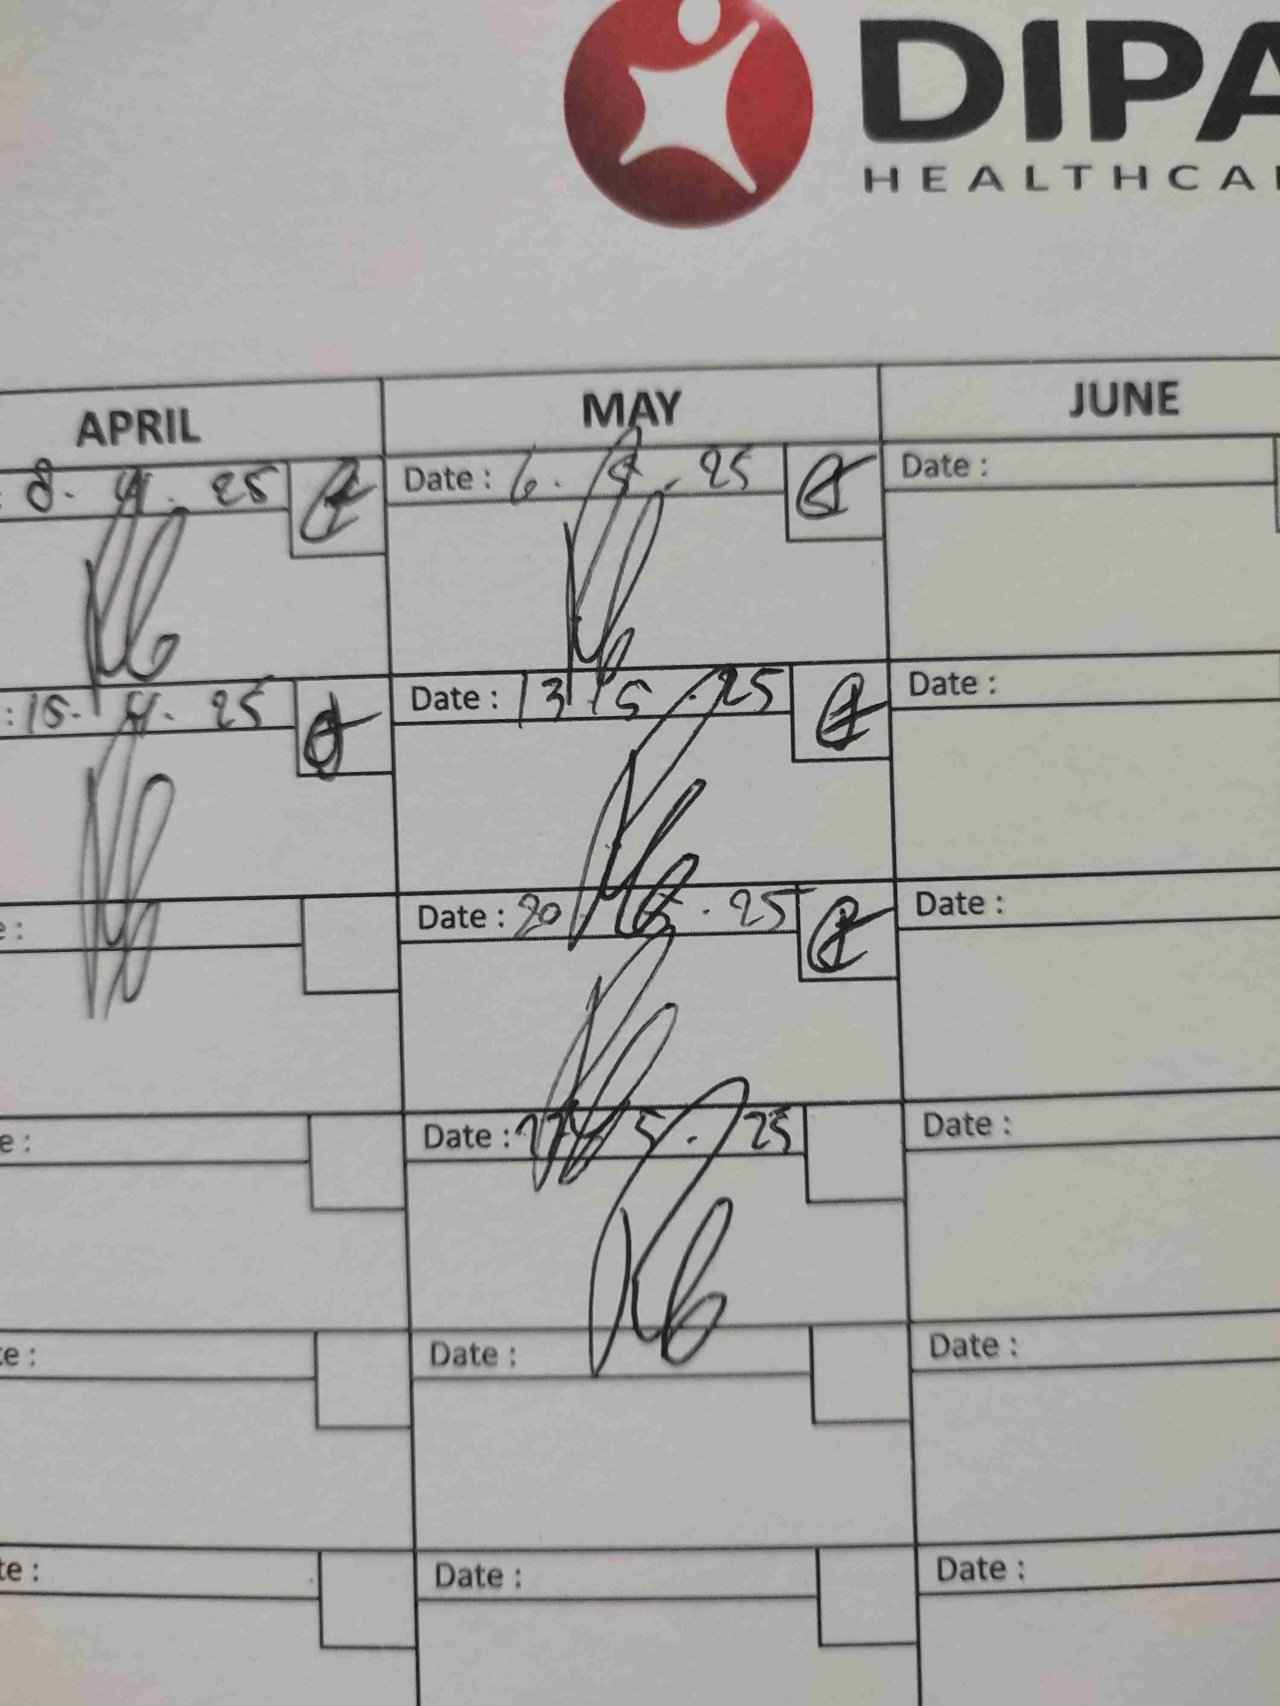 DIPA
HEALTHCA
APRIL MAY JUNE
8. 4. 25 Date : 6. 5. 25 Date :
: 15. 4. 25 Date : 13 5 . 25 Date :
e : Date : 20 5 . 25 Date :
e : Date : 27 5 . 25 Date :
te : Date : Date :
te : Date : Date :